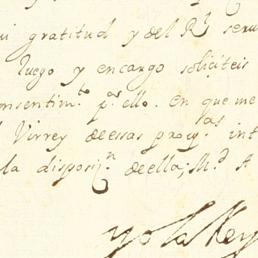 gratitud y del Rl. seru
luego y encargo soliciteis
onsentimto. pa. ello. en que me
Virrey de essas proqas. int
la disposiçn. de ella; Md. A
yo la Rey